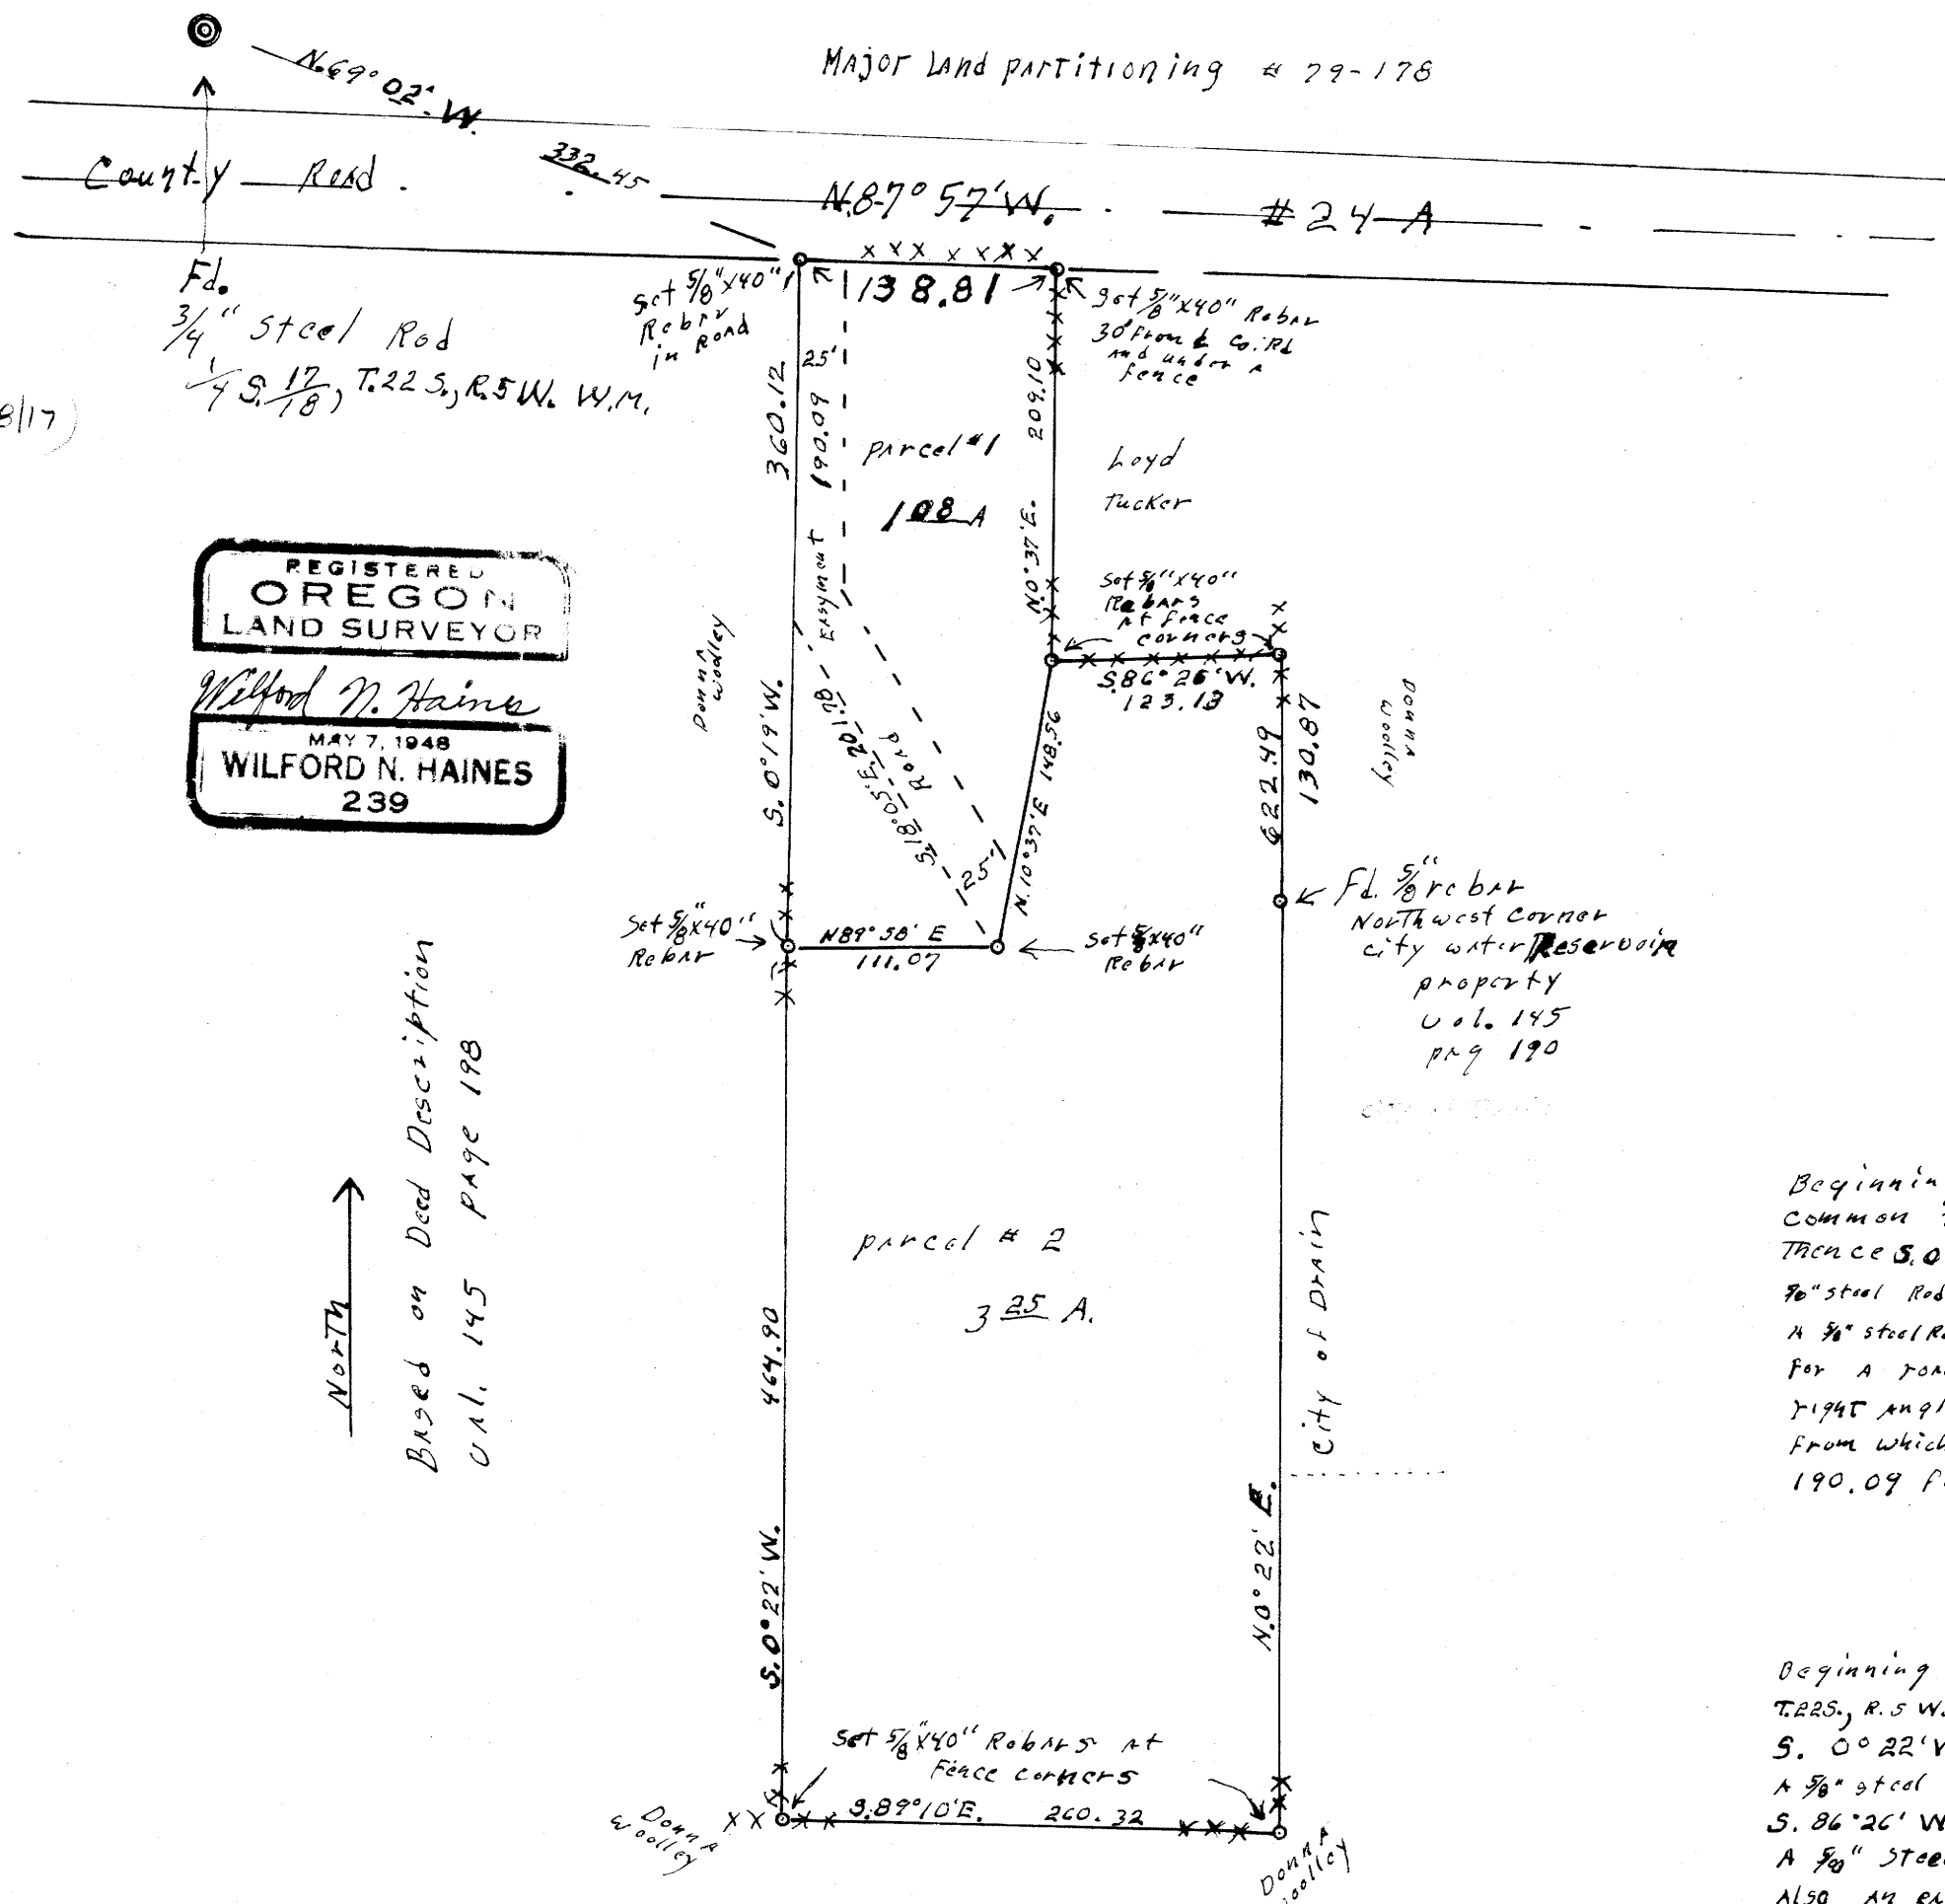 Major Land partitioning # 79-178
N.69° 02' W.
332.45
County Road
N.87° 57' W.
# 24-A
Fd.
3/4" Steel Rod
1/4 S. 17/18, T.22 S., R.5 W. W.M.
8/17)
Set 5/8"x40"
Rebar
in Road
138.81
Set 5/8"x40" Rebar
30' from ℄ Co. Rd
and under
fence
25'
360.12
190.09
209.10
parcel #1
1 08 A
Loyd
Tucker
N.0°37'E.
Easyment
Road
REGISTERED
OREGON
LAND SURVEYOR
Wilford N. Haines
MAY 7, 1948
WILFORD N. HAINES
239
Donna
Woolley
S.0°19'W.
S.18°05'E. 201.78
Set 5/8"x40"
Rebars
at fence
corners
S.86°26'W.
123.13
N.10°37'E 148.56
25'
622.49
130.87
Donna
Woolley
Fd. 5/8" rebar
Northwest Corner
city water Reservoir
property
Vol. 145
pag 190
Set 5/8"x40"
Rebar
N89°58' E
111.07
Set 5/8x40"
Rebar
Based on Deed Description
Vol. 145 page 198
North
parcel # 2
3 25 A.
464.90
S.0°22'W.
City of Drain
N.0°22' E.
Set 5/8"x40" Rebars at
Fence corners
S.89°10'E. 260.32
Donna
Woolley
Donna
Woolley
Beginnin
Common
Thence S.0
5/8" steel Rod
A 5/8" steel R
For A roa
right angl
from which
190.09 f
Beginning
T.22S., R.5 W.
S. 0°22'W
A 5/8" steel
S. 86°26' W
A 5/8" Stee
Also an